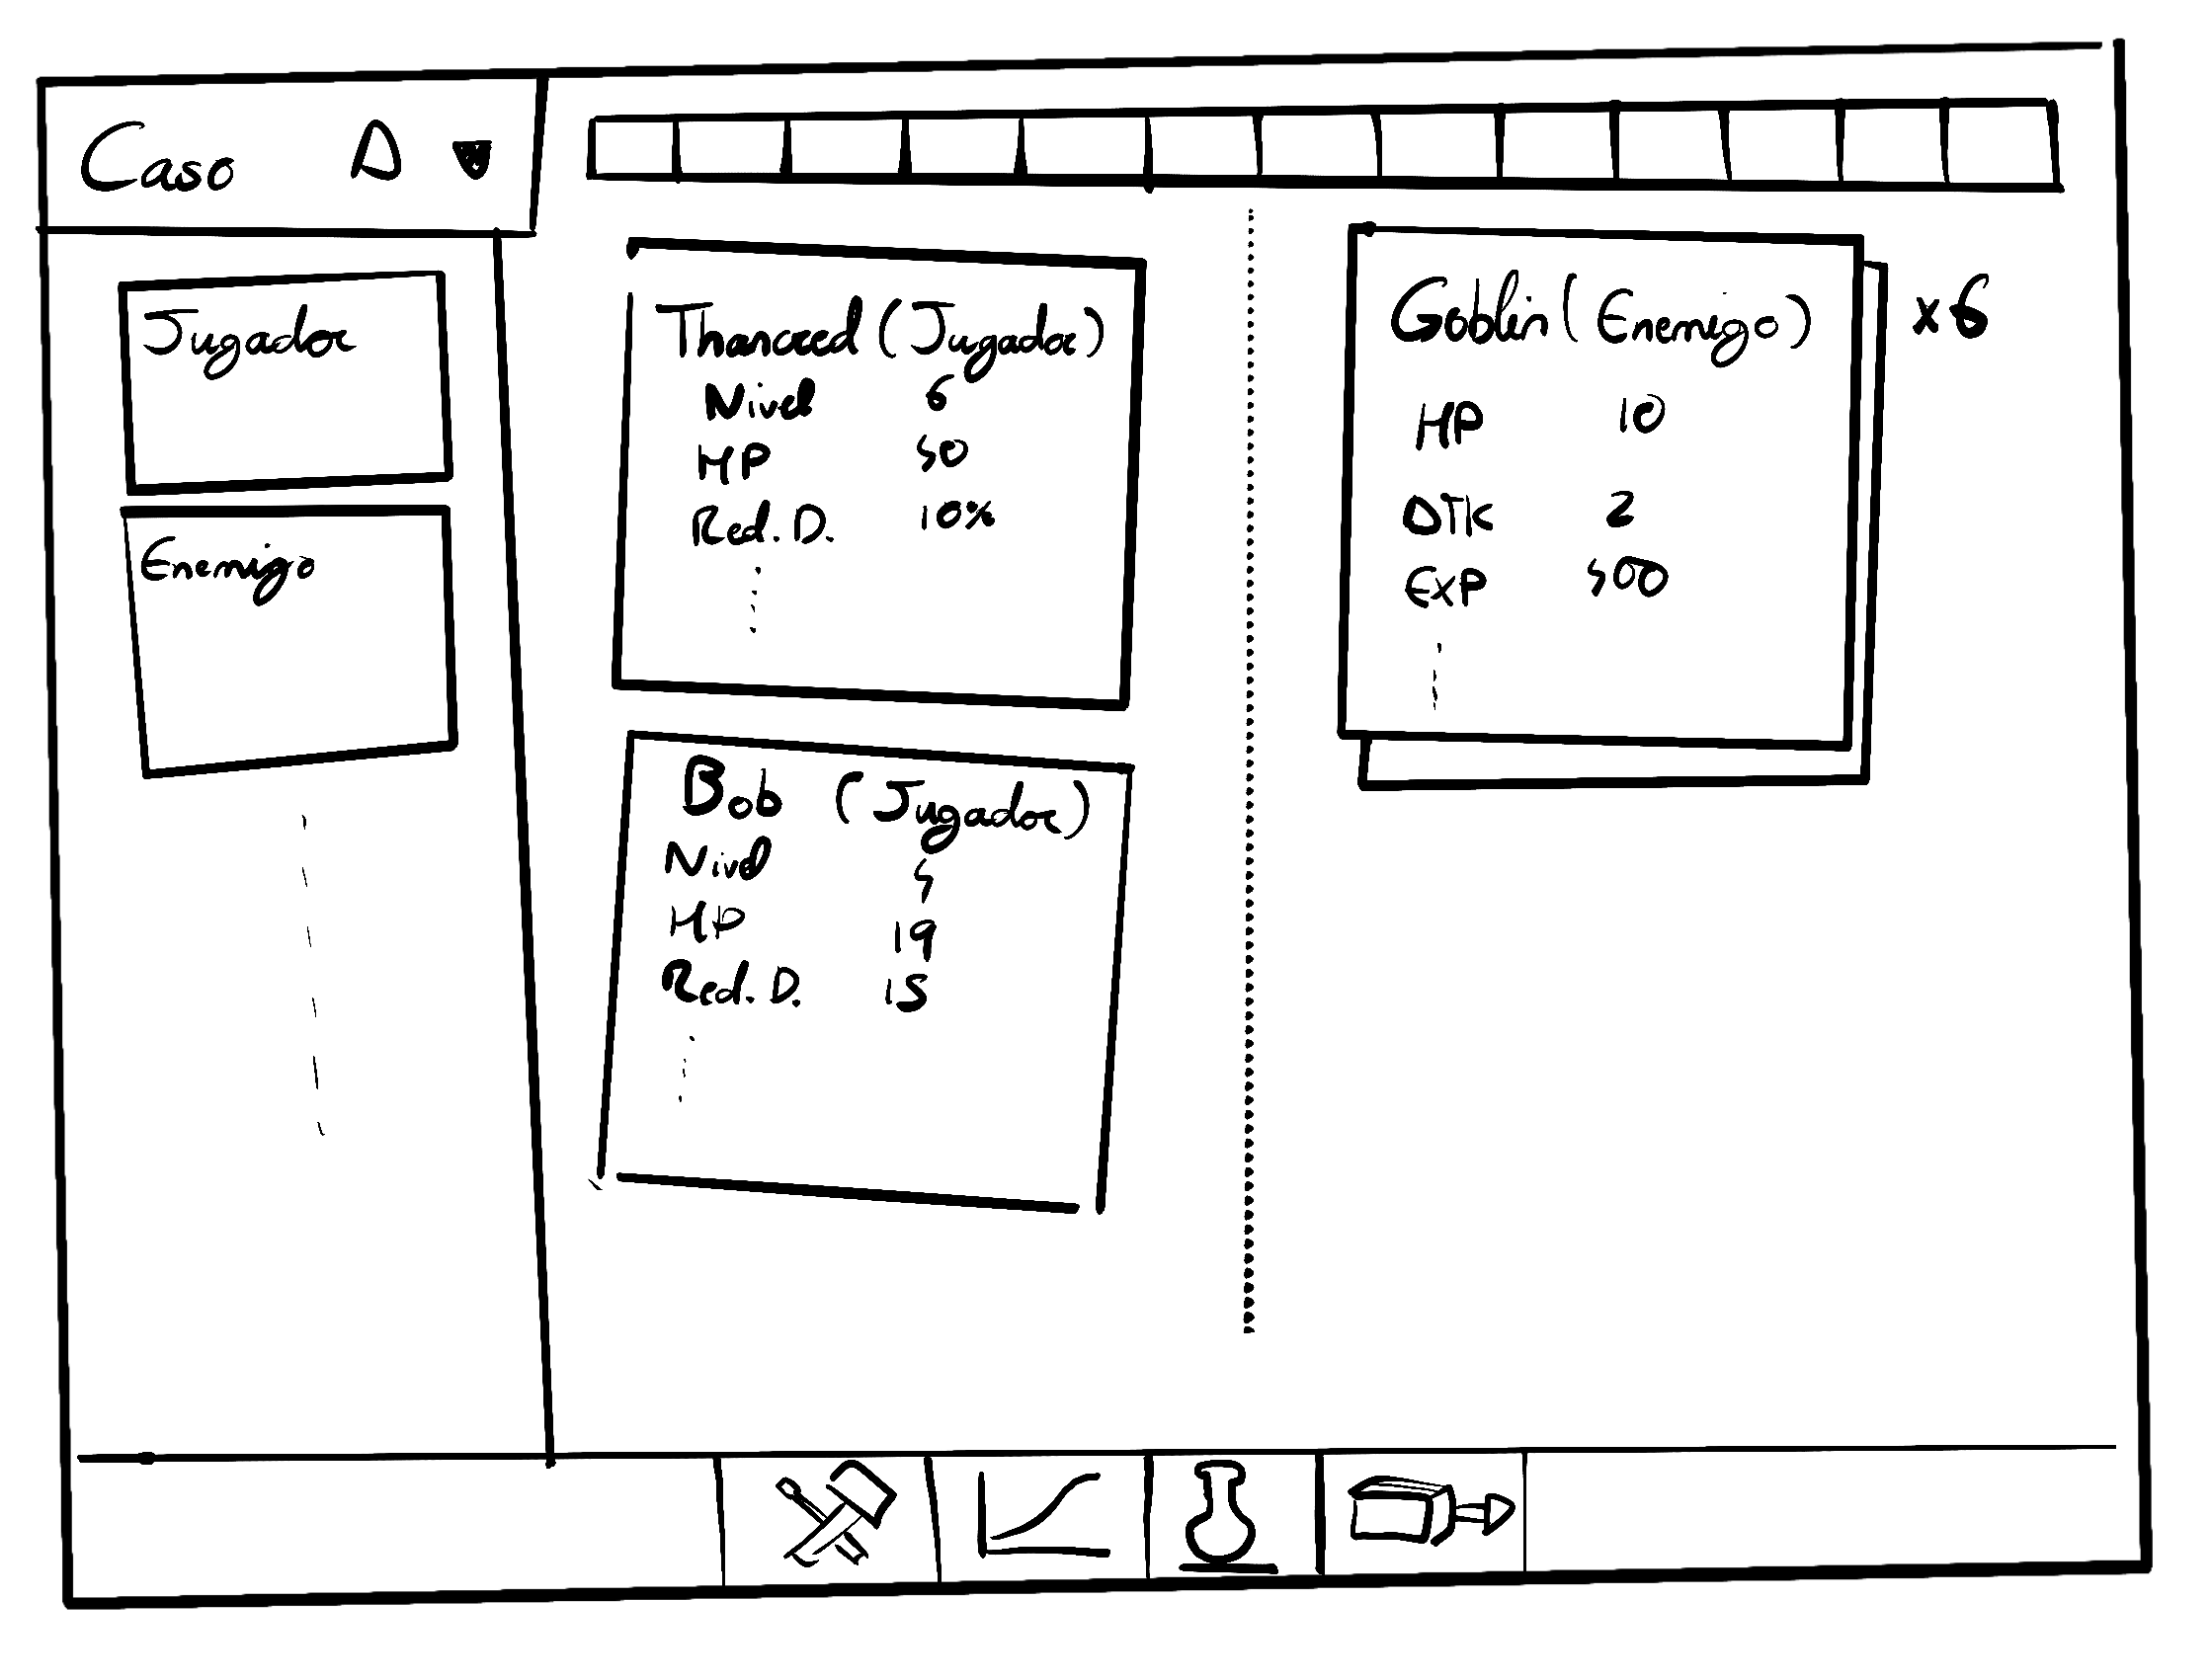 Caso A
Jugador
Enemigo
Thancred (Jugador)
Nivel 6
HP 50
Red. D. 10%
Bob (Jugador)
Nivel 5
HP 19
Red. D. 15
Goblin (Enemigo) x6
HP 10
ATK 2
EXP 500